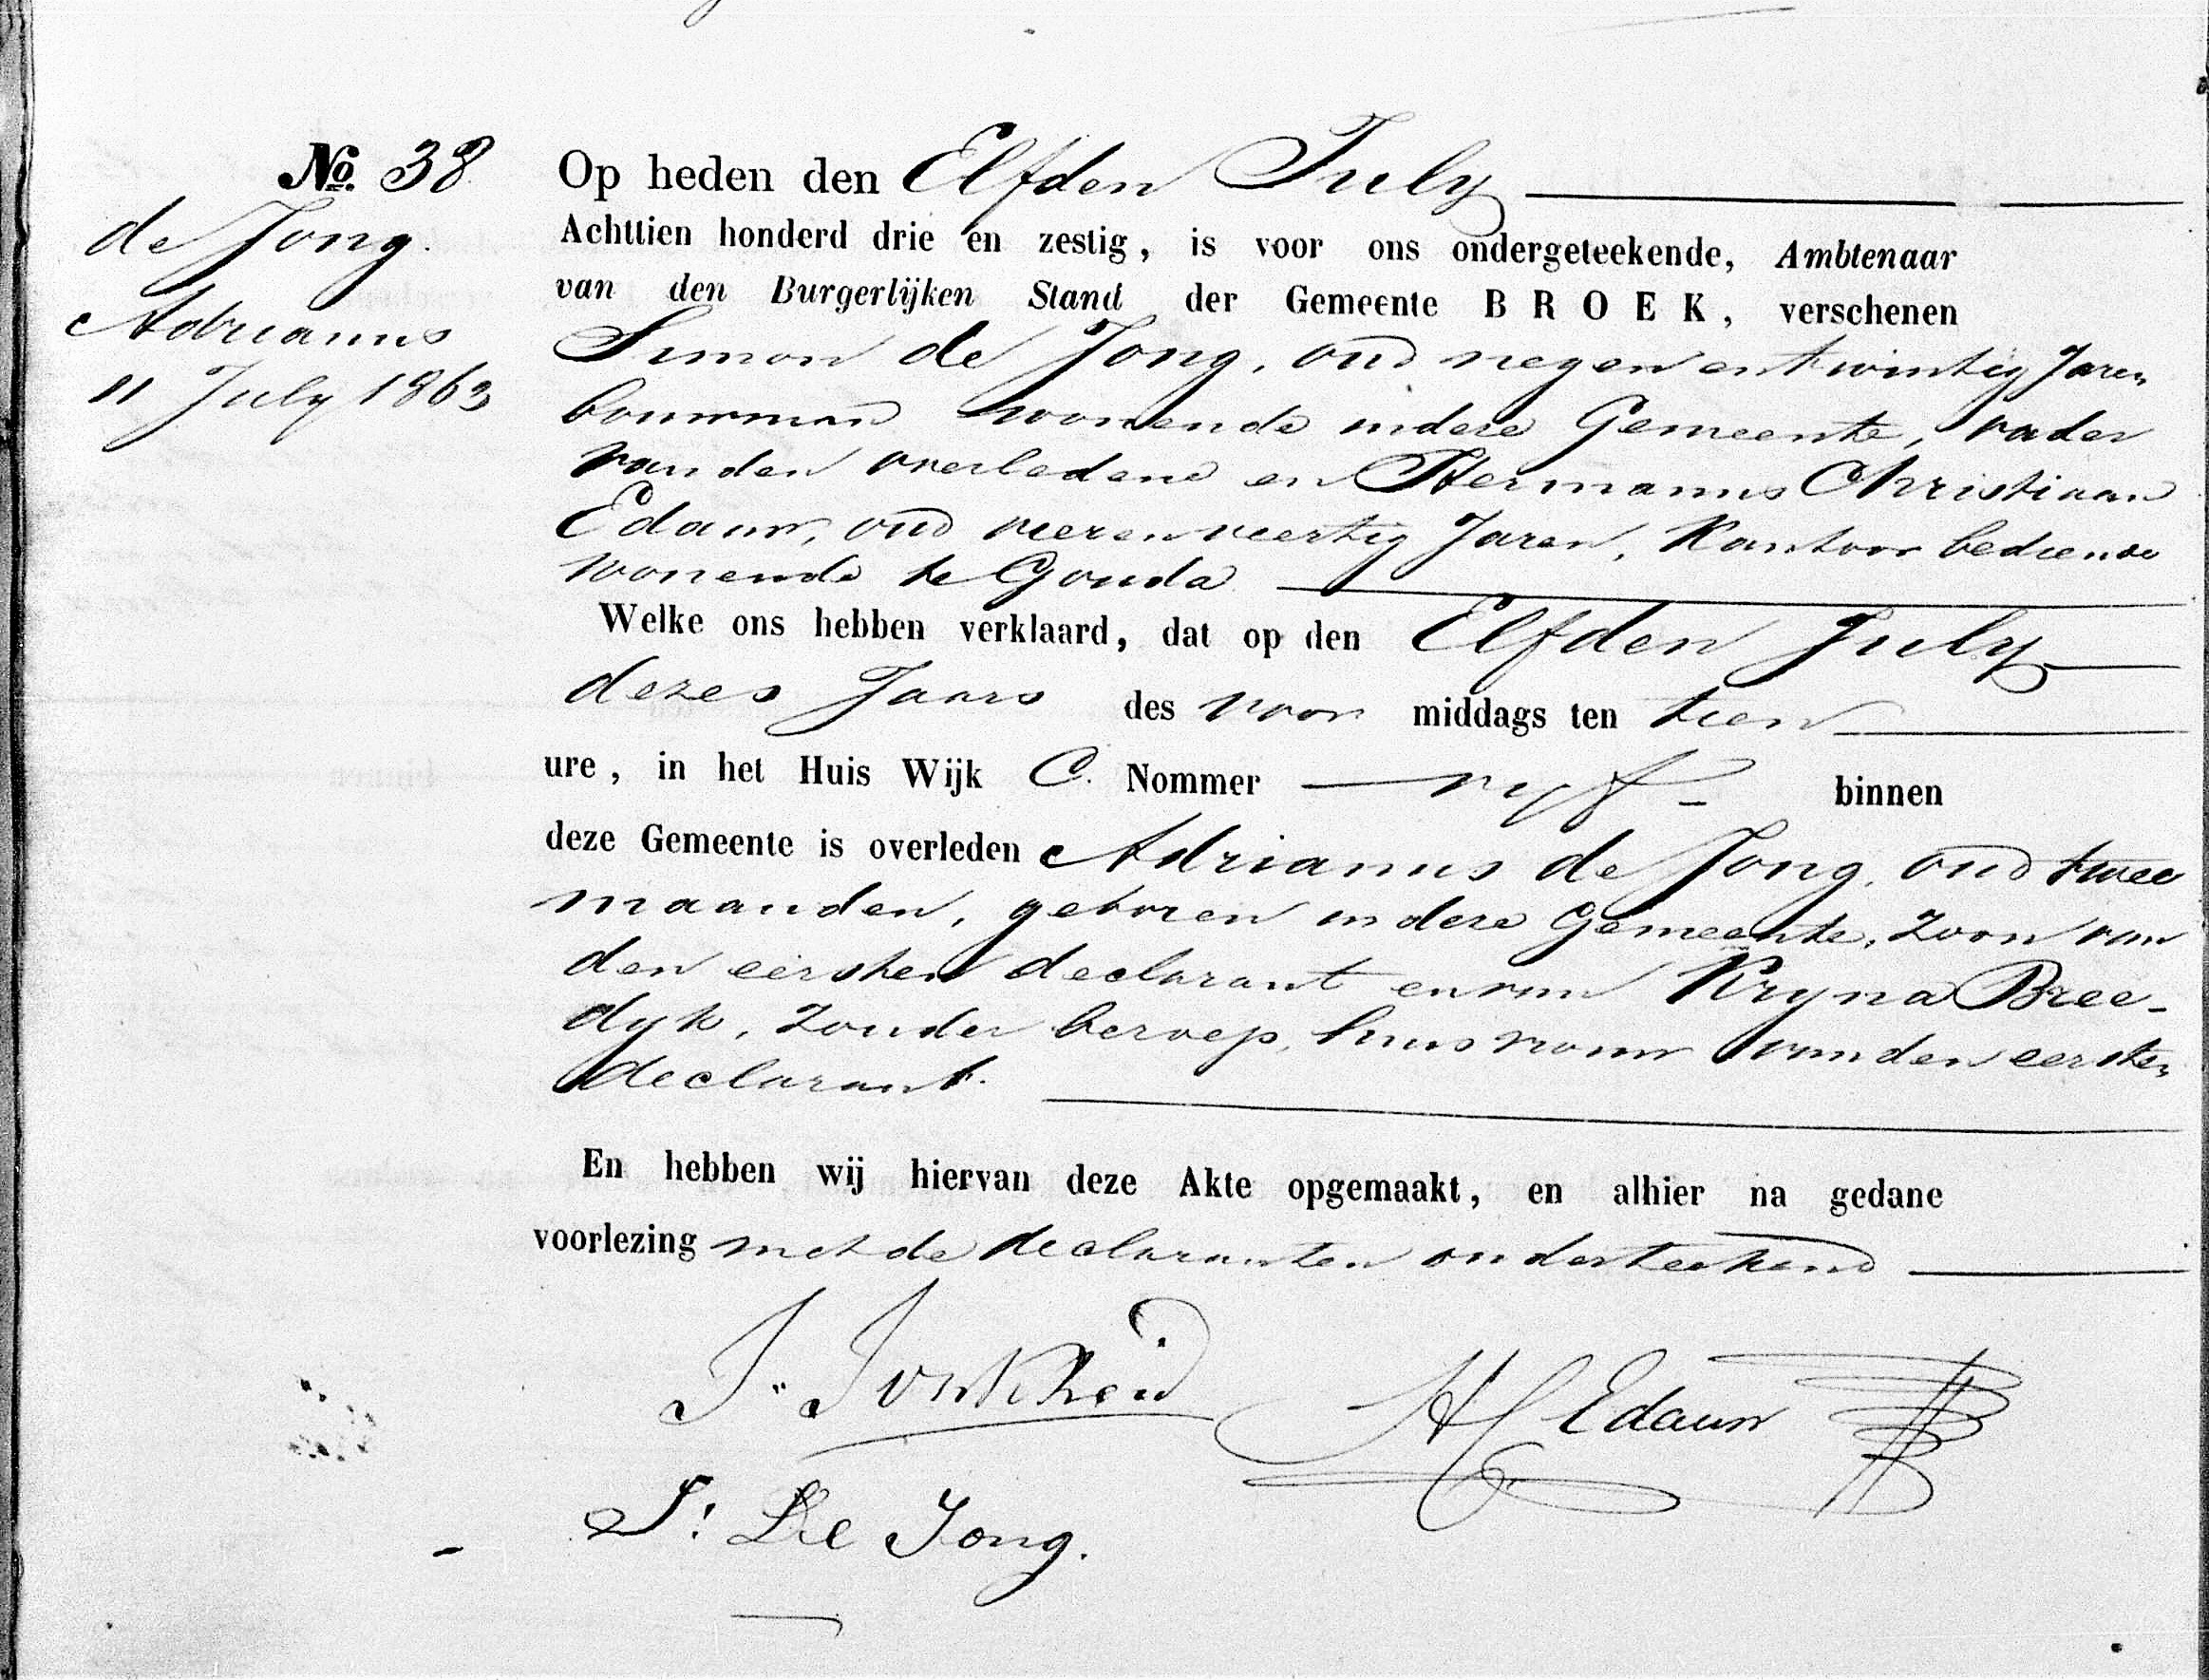 No. 38
de Jong.
Adrianus
11 July 1863
Op heden den Elfden July
Achttien honderd drie en zestig, is voor ons ondergeteekende, Ambtenaar
van den Burgerlijken Stand der Gemeente BROEK, verschenen
Simon de Jong, oud negen en twintig Jaren
bouwman wonende in deze Gemeente, vader
van den overledene en Hermanus Christiaan
Edauw, oud vier en veertig Jaren, Kantoor bediende
wonende te Gouda.
Welke ons hebben verklaard, dat op den Elfden July
dezes Jaars des voor middags ten tien
ure, in het Huis Wijk C. Nommer vyf binnen
deze Gemeente is overleden Adrianus de Jong, oud twee
maanden, geboren in deze Gemeente, zoon van
den eersten declarant en van Kryna Bree-
dyk, zonder beroep, huisvrouw van den eersten
declarant.
En hebben wij hiervan deze Akte opgemaakt, en alhier na gedane
voorlezing met de declaranten onderteekend
J. Jonkheid
HC Edauw
S: De Jong.